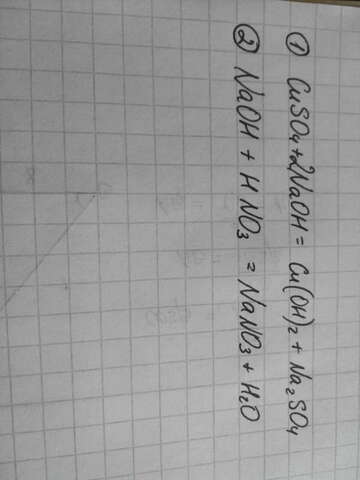 ① CuSO₄+2NaOH = Cu(OH)₂ + Na₂SO₄
② NaOH + HNO₃ = NaNO₃ + H₂O